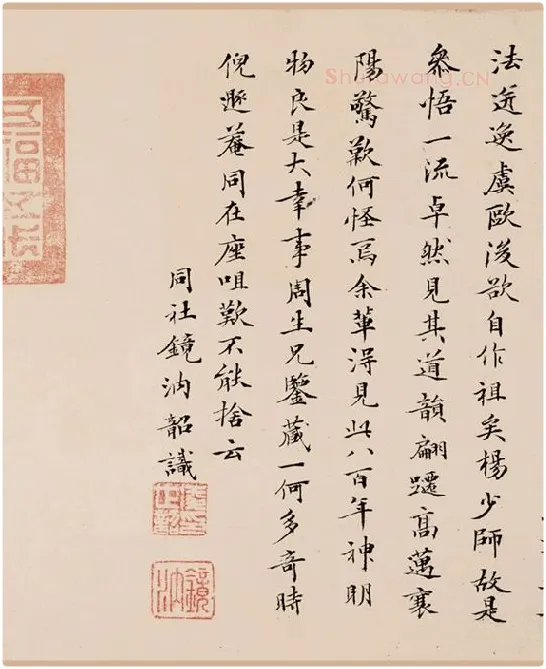 法迹逸虞歐後欲自作祖矣楊少師故是
叅悟一流卓然見其道韻翩躚高邁襄
陽驚歎何怪焉余輩淂見此八百年神明
物良是大幸事周生兄鑒藏一何多奇時
倪遯菴同在座咀歎不能捨云
同社鏡汭韶識
鏡汭
Shufawang.CN